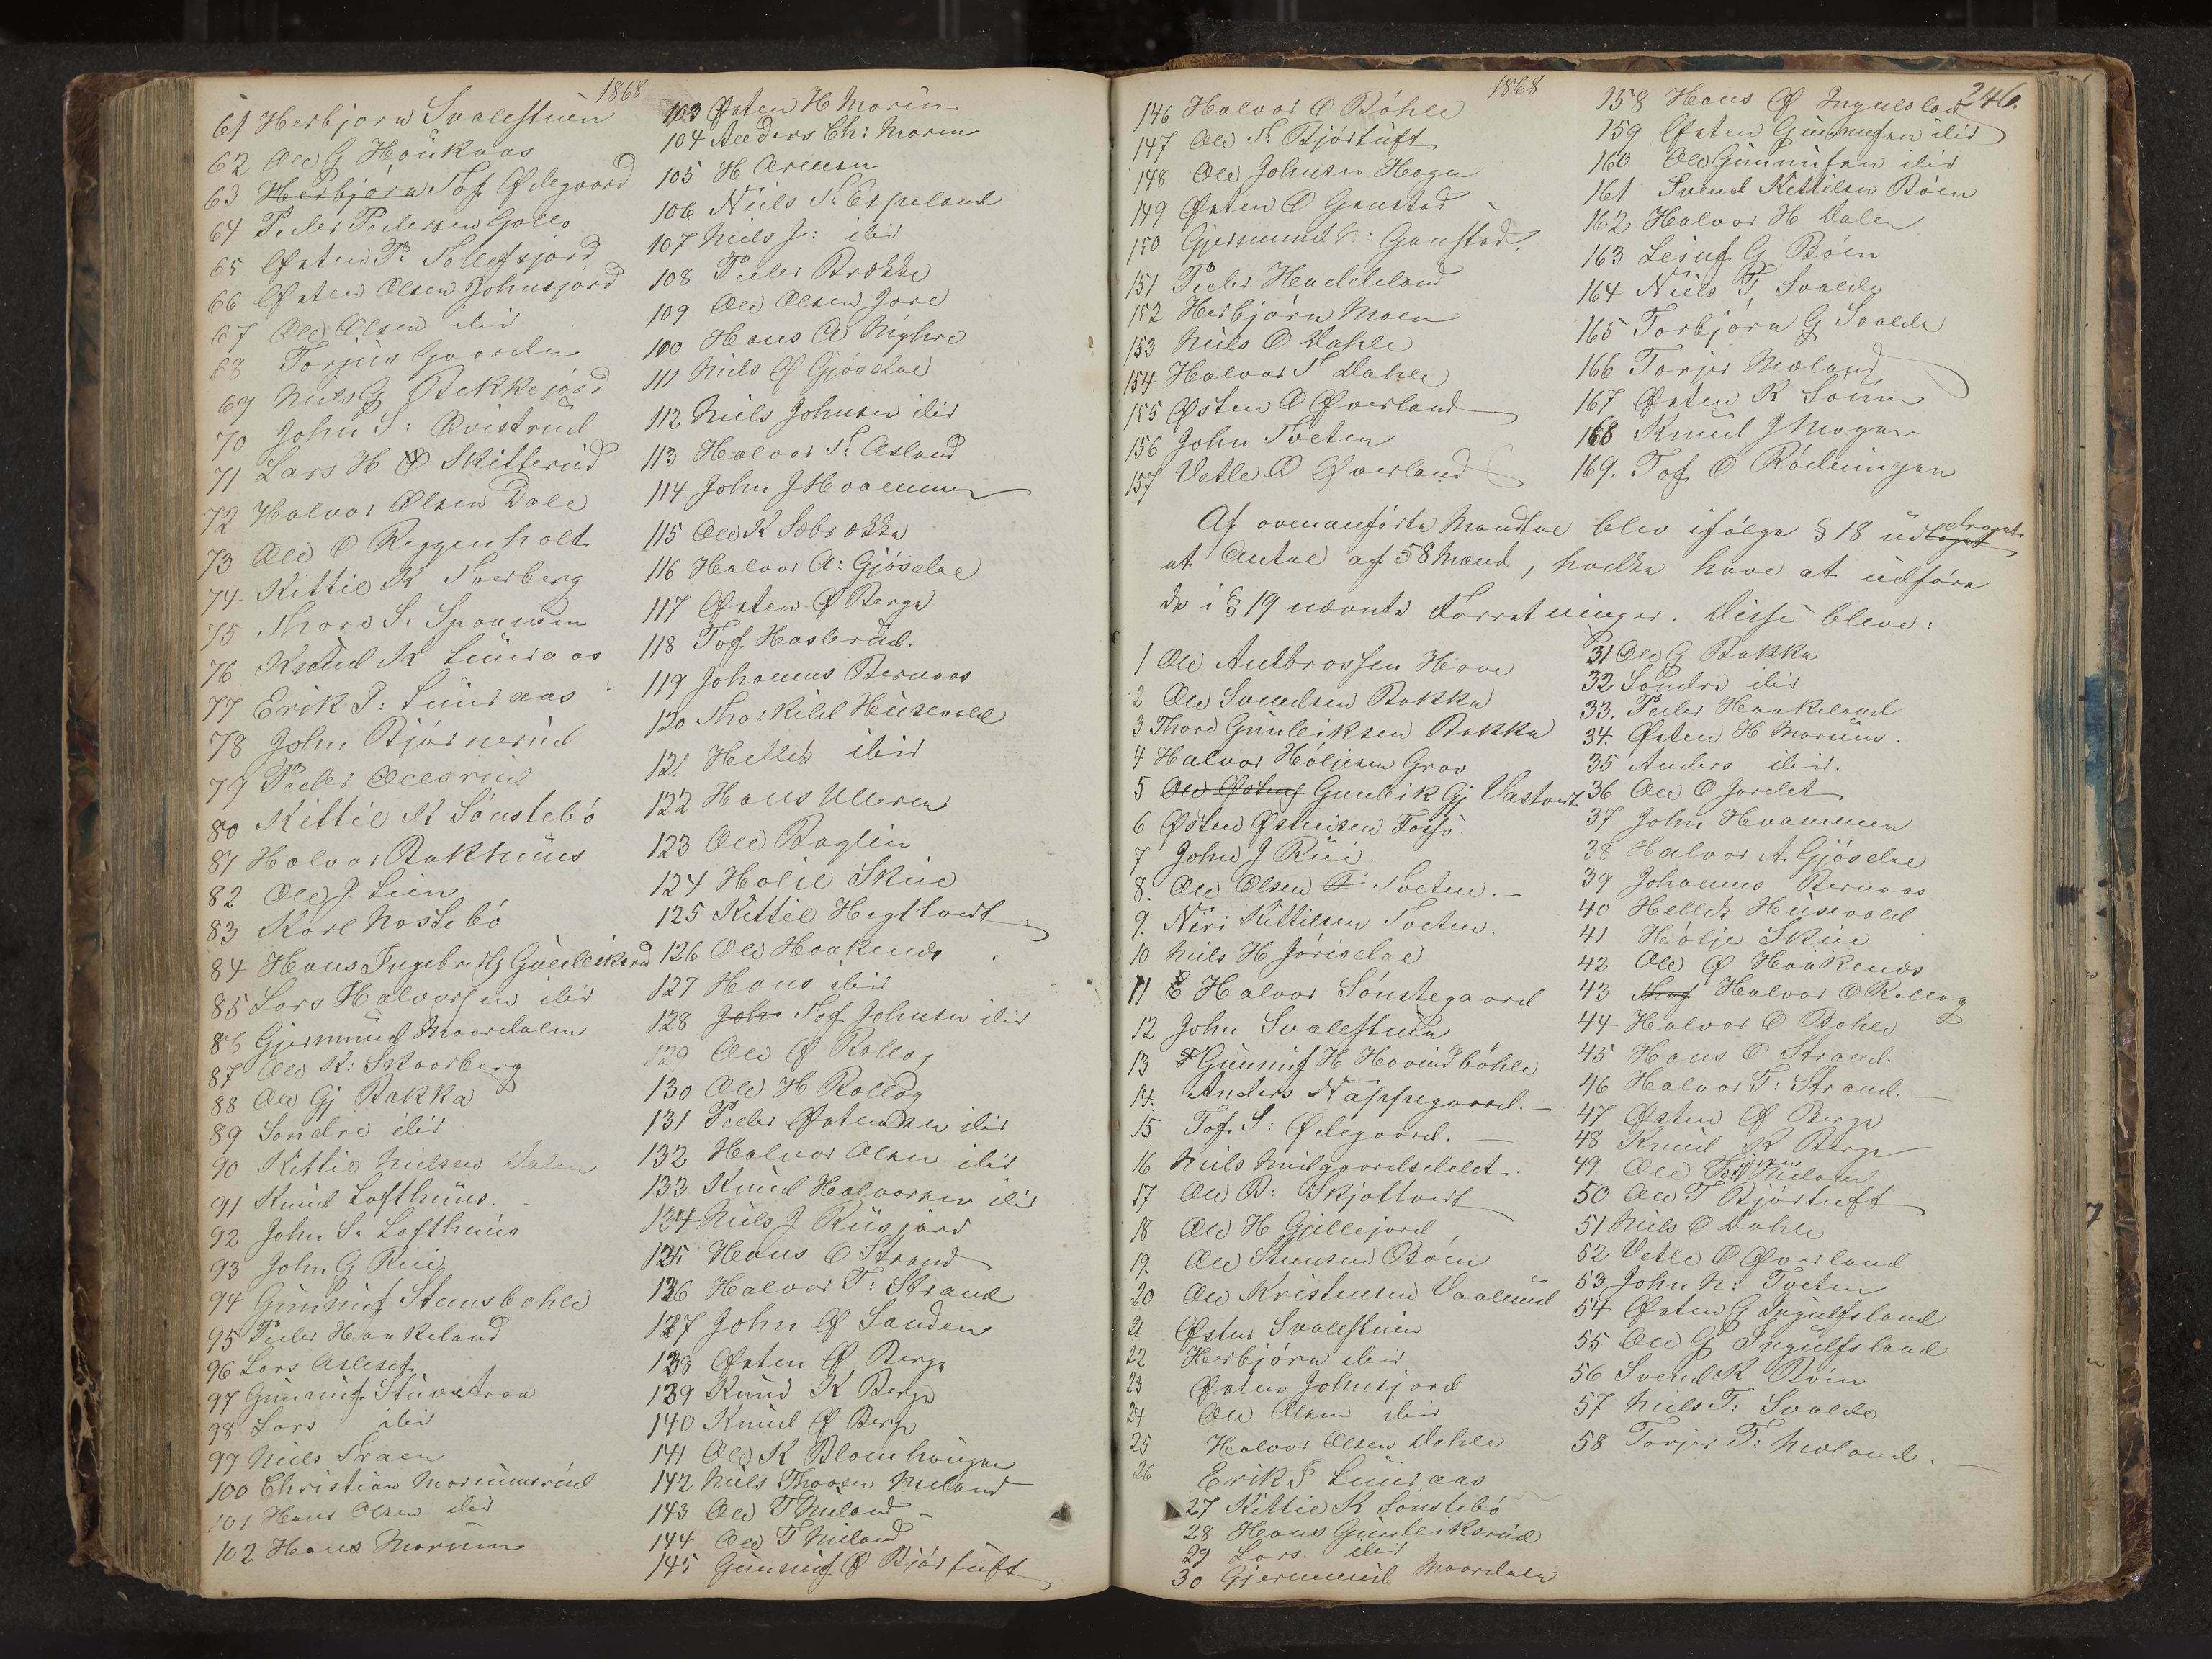 1868
61 Herbjørn Svalestuen
62 Ole G Haukaas
63 Herbjørn Tof Ødegaard
64 Peder Pedersen Gollo
65 Østen P: Tollefsjord
66 Østen Olsen Johnsjord
67 Ole Olsen ibid
68 Torjus Gaarden
69 Niels G Bekkejord
70 John S: Qvistrud
71 Lars H Skitterud
72 Halvor Olsen Dale
73 Ole O Reggenholt
74 Kittil K Sverberg
75 Thore S. Spaanem
76 Knud K Luuraas
77 Erik P: Luuraas
78 John Bjørnerud
79 Peder Olesrud
80 Kittil K Sønstebø
81 Halvor Bakhuus
82 Ole J Lien
83 Karl Nostebø
84 Hans Ingebretg Gunleiksrud
85 Lars Halvorsen ibid
86 Gjermund Maardalen
87 Ole K: Skaarberg
88 Ole Gj Bakka
89 Sondre ibid
90 Kittil Nielsen Dalen
91 Knud Lofthuus.
92 John S. Lofthuus
93 John G Rui
94 Gunnuf Steensbøhle
95 Peder Haakeland
96 Lars Aslesef
97 Gunnuf Stuvstraa
98 Lars ibid
99 Niels Traen
100 Christian Marumsrud
101 Hans Olsen ibid
102 Hans Marum
103 Østen H Marum
104 Anders Ch: Marum
105 H Arensen
106 Niels S. Espeland
107 Niels J: ibid
108 Peder Brække
109 Ole Olsen Jore
100 Hans A Myhre
111 Niels O Gjøsdal
112 Niels Johnsen ibid
113 Halvor S. Asland
114 John J Hvammen
115 Ole K Sebrekke
116 Halvor A: Gjøsdal
117 Østen Ø Berge
118 Tof Haslerud.
119 Johannes Bernaas
120 Thorkild Husevold
121 Hellek ibid
122 Hans Ulleren
123 Ole Baglin
124 Holje Skue
125 Kittil Hegttveit
126 Ole Haakenæs
127 Hans ibid
128 Joh Tof Johnsen ibid
129 Ole Ø Rollag
130 Ole H Rollag
131 Peder Østensen ibid
132 Halvor Olsen ibid
133 Knud Halvorsen ibid
134 Niels J Rusjord
135 Hans O Strand
136 Halvor T: Strand
137 John Ø Sanden
138 Østen Ø Berge
139 Knud K Berge
140 Knud Ø Berge
141 Ole K Blomhaugen
142 Niels Thorsen Miland
143 Ole T Miland
144 Ole T Miland
145 Gunnuf Ø Bjørtuft
1868
246.
146 Halvor O Bøhle
147 Ole T. Bjørtuft
148 Ole Johnsen Haga
149 Østen O Gaustad
150 Gjermund G: Gaustad.
151 Peder Haddeland
152 Herbjørn Moen
153 Niels O Dahle
154 Halvor T Dahle
155 Østen O Øverland
156 John Tveten
157 Vetle O Øverland
158 Hans Ø Ingulsland
159 Østen Gunnufsen ibid
160 Ole Gunnufsen ibid
161 Svend Kittilsen Bøen
162 Halvor H Dalen
163 Leiuf G Bøen
164 Niels T Svalde
165 Torbjørn G Svalde
166 Torjer Moland
167 Østen K Sønm
168 Knud J Mogen
169. Tof O Rødningen
Af ovenanførte Mandtal blev ifølge § 18 udtaget draget
et Antal af 58 Mænd, hvilke have at udføre
de i § 19 nævnte Forretninger. Disse bleve:
1 Ole Antbrossen Hove
2 Ole Svendsen Bakka
3 Thore Gunleiksen Bakka
4 Halvor Høljesen Grov
5 Ole Østenf Gunleik Gj Vastveit.
6 Østen Østensen Fossø.
7 John J Rui.
8. Ole Olsen T Tveten.
9. Neri Kittilsen Tveten.
10 Niels H Jørisdal
11 Halvor Sønstegaard
12 John Svalestuen
13 Gunnuf H Hovindbøhle
14. Anders Nappegaard.
15 Tof. S: Ødegaard.
16 Niels Midgaardsdelet.
17 Ole B: Skjottveit
18 Ole H Gjellejord
19. Ole Steensen Bøen
20 Ole Kristensen Vaalund
21 Østen Svalestuen
22 Herbjørn ibid
23 Østen Johnsjord
24 Ole Olsen ibid
25 Halvor Olsen Dahle
26 Erik P Luuraas
27 Kittil K Sønstebø
28 Hans Gunleiksrud
29 Lars ibid
30 Gjermund Maardalen
31 Ole G Bakka
32 Sondre ibid
33. Peder Haakeland
34. Østen H Marum.
35 Anders ibid.
36 Ole O Jordet
37 John Hvammen
38 Halvor A. Gjøsdal
39 Johannes Bernaas
40 Hellek Husevold
41 Hølje Skue
42 Ole Ø Haakenæs
43 Halvor O Rollag
44 Halvor O Bøhle
45 Hans O Strand.
46 Halvor T: Strand.
47 Østen Ø Berge
48 Knud K Berge
49. Ole Miland
50 Ole T Bjørtuft
51 Niels O Dahle
52 Vetle O Øverland
53 John N: Tveten
54 Østen G Ingulfsland
55 Ole G Ingulfsland
56 Svend K Bøen
57 Niels T: Svalde
58 Torjer T: Moland.